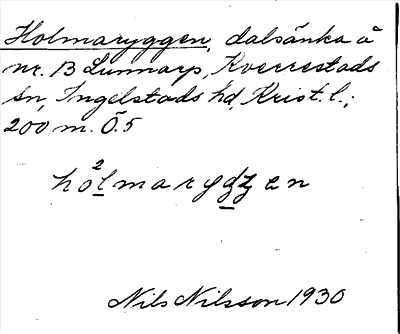 Holmaryggen, dalsänka å
nr. 13 Lunnarp, Kverrestads
sn, Ingelstads hd, Krist. l.;
200 m. Ö. 5
ho²lmaryggen
Nils Nilsson 1930